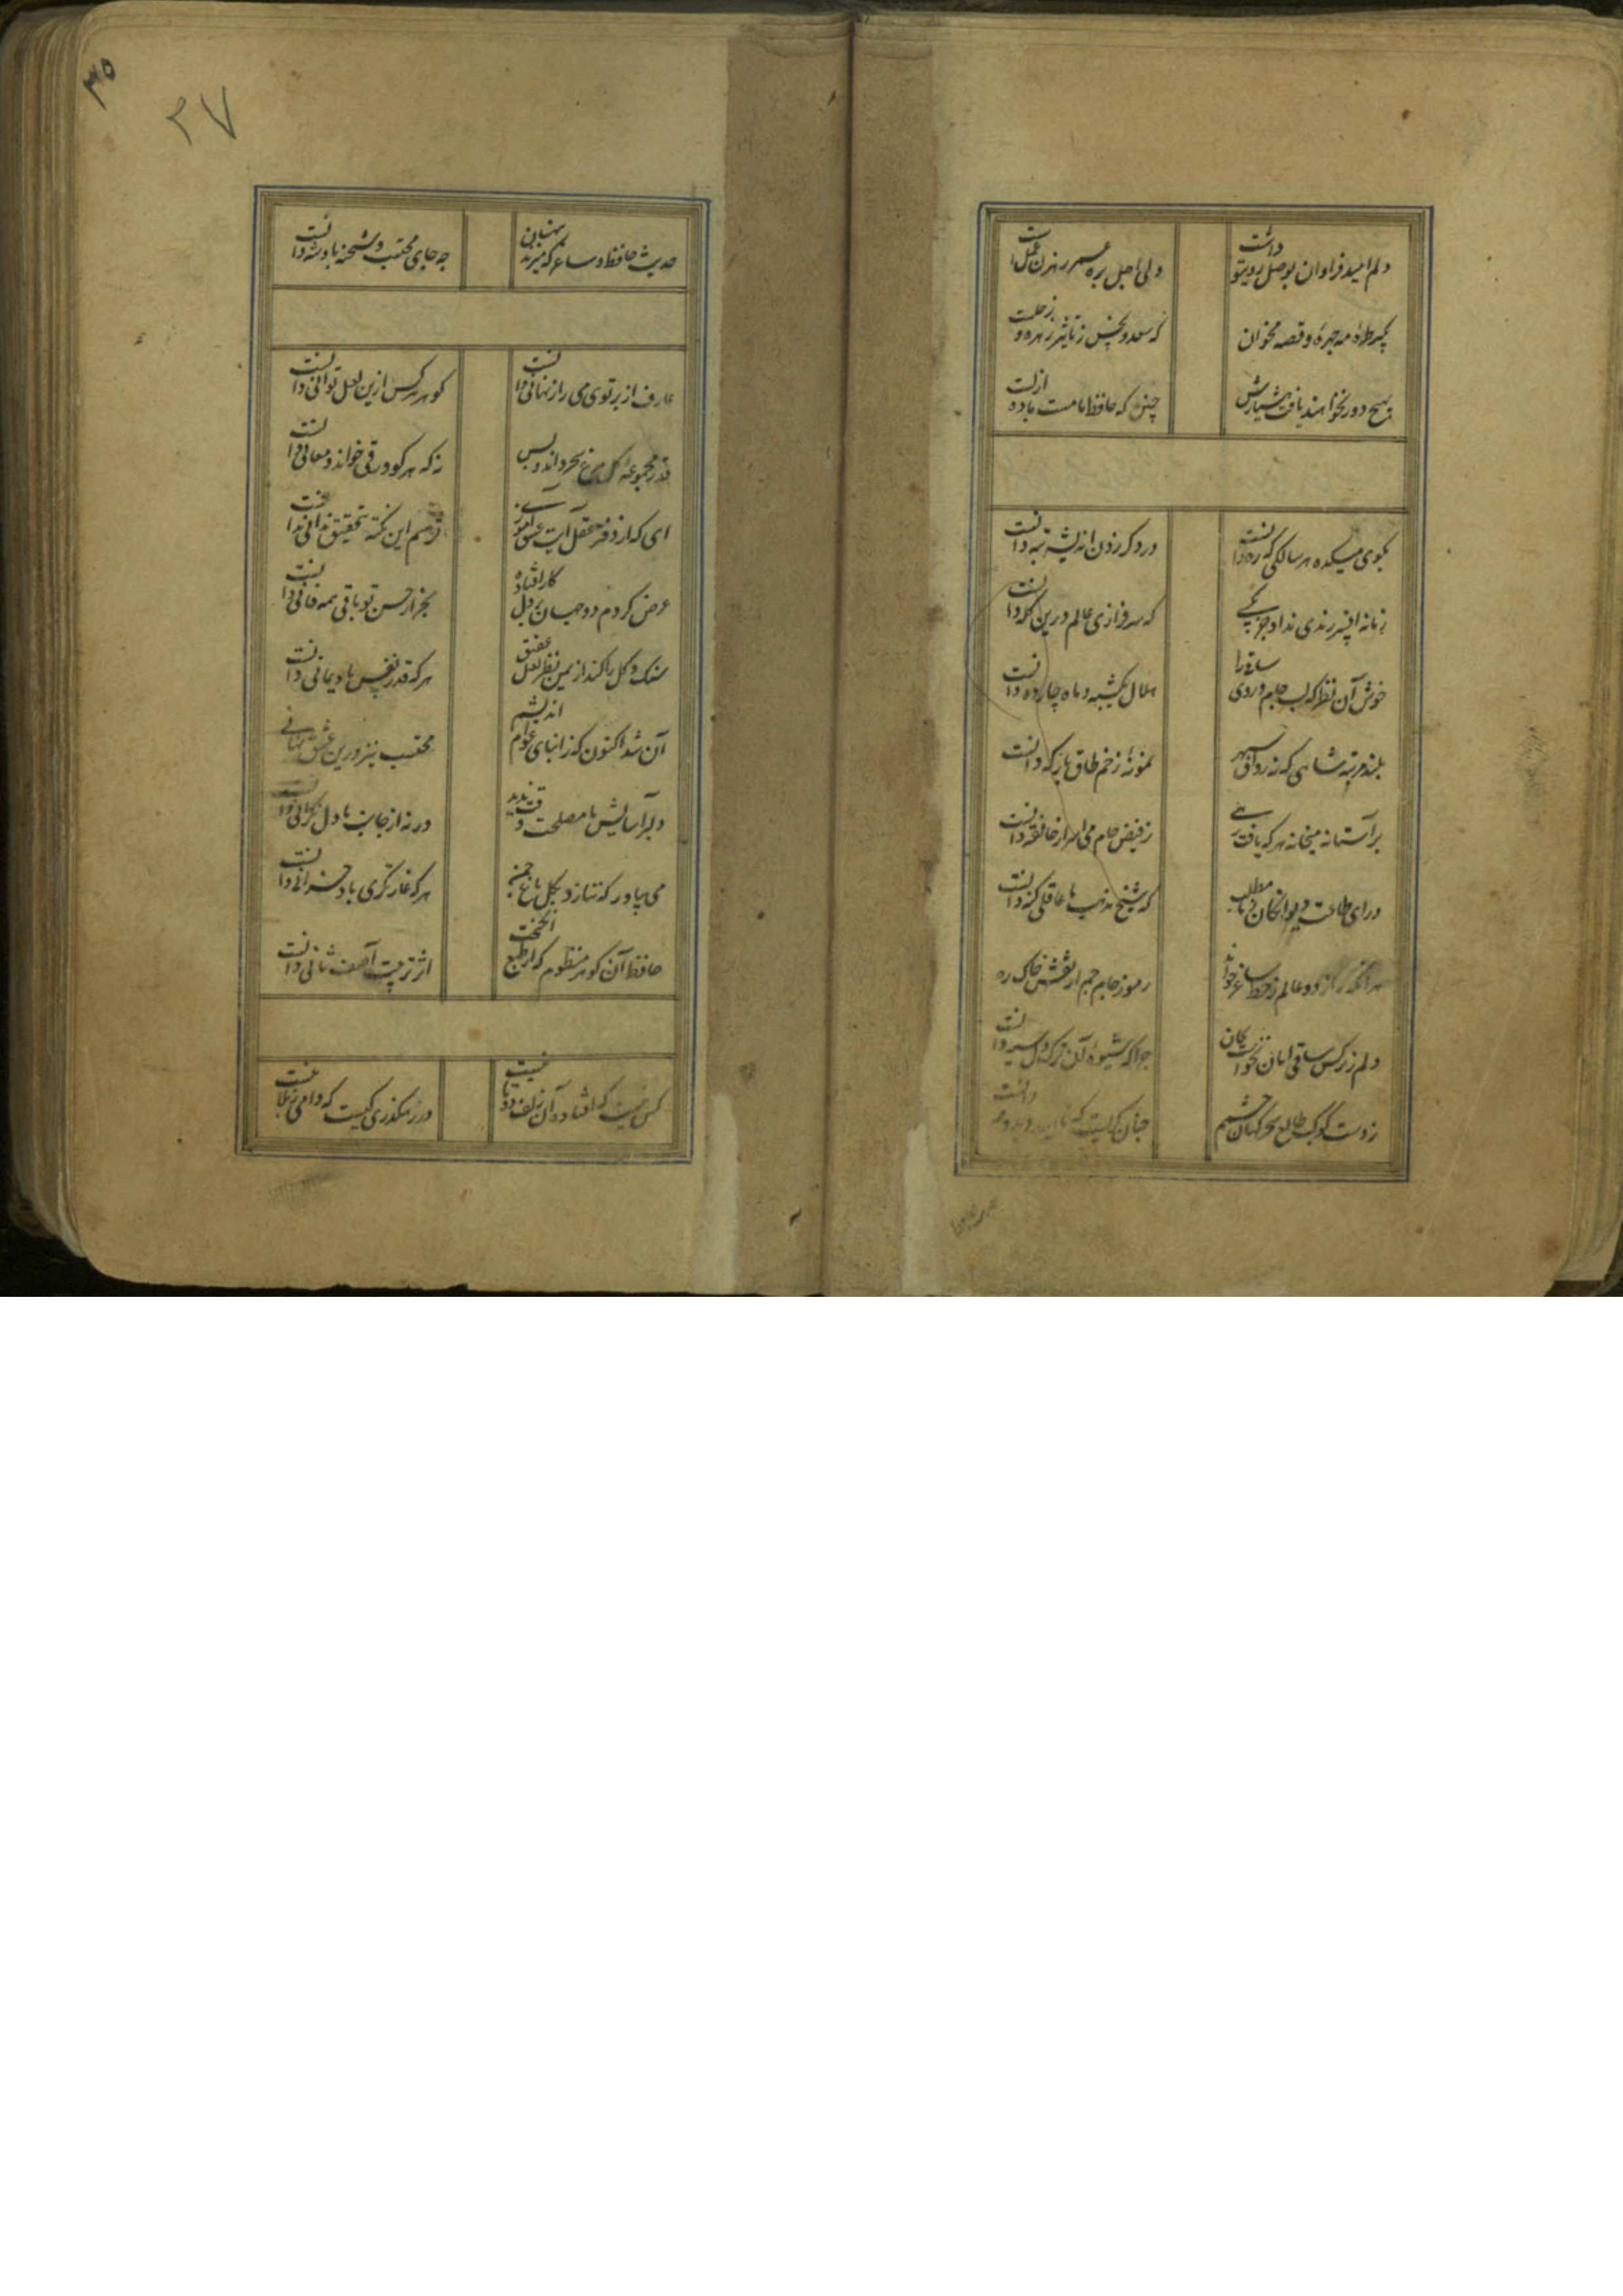 دلم امید فراوان بوصل روی تو داشت
ولی اجل بره عمر رهزن امل است
بگیر طره مه چهره و قصه مخوان
که سعد و نحس ز تاثیر زهره و زحلست
بهیچ دور نخواهند یافت هشیارش
چنین که حافظ ما مست باده ازلست
بکوی میکده هر سالکی که ره دانست
در دگر زدن اندیشه تبه دانست
زمانه افسر رندی نداد جز بکسی
که سرفرازی عالم درین کله دانست
خوش آن نظر که لب جام و روی ساقی را
هلال یکشبه و ماه چارده دانست
بلند مرتبه شاهی که نه رواق سپهر
نمونه ز خم طاق بارگه دانست
بر آستانه میخانه هر که یافت رهی
ز فیض جام می اسرار خانقه دانست
ورای طاعت دیوانگان ز ما مطلب
که شیخ مذهب ما عاقلی گنه دانست
هر آنکه راز دو عالم ز خط ساغر خواند
رموز جام جم از نقش خاک ره
دلم ز نرکس ساقی امان نخواست بجان
چرا که شیوه آن ترک دل سیه دانست
ز دست کوکب طالع سحرکهان چشم
چنان گریست که ناهید دید و مه دانست
۳۵
۳۷
حدیث حافظ و ساغر که میزند پنهانی
چه جای محتسب و شحنه پادشه دانست
عارف از پرتوی می راز نهانی دانست
کوهر هر کس ازین لعل توانی دانست
قدر مجموعه گل مرغ سحر داند و بس
نه که هر کو ورقی خواند معانی دانست
ای که از دفتر عقل آیت عشق آموزی
ترسم این نکته بتحقیق ندانی دانست
عرض کردم دو جهان بر دل کار افتاده
بجز از حسن تو باقی همه فانی دانست
سنک و کل را کند از یمن نظر لعل و عقیق
هر که قدر نفس باد یمانی دانست
آن شد اکنون که ز ابنای عوام اندیشم
محتسب نیز درین عشق نهانی
دلبر آسایش ما مصلحت وقت ندید
ورنه از جانب ما دل نگرانی دانست
می بیاور که ننازد بکل باغ جهان
هر که غارتگری باد خزانی دانست
حافظ آن کوهر منظوم که از طبع انگیخت
اثر تربیت آصف ثانی دانست
کس نیست که افتاده آن زلف دوتا نیست
در رهکذری کیست که دامی ز بلا نیست